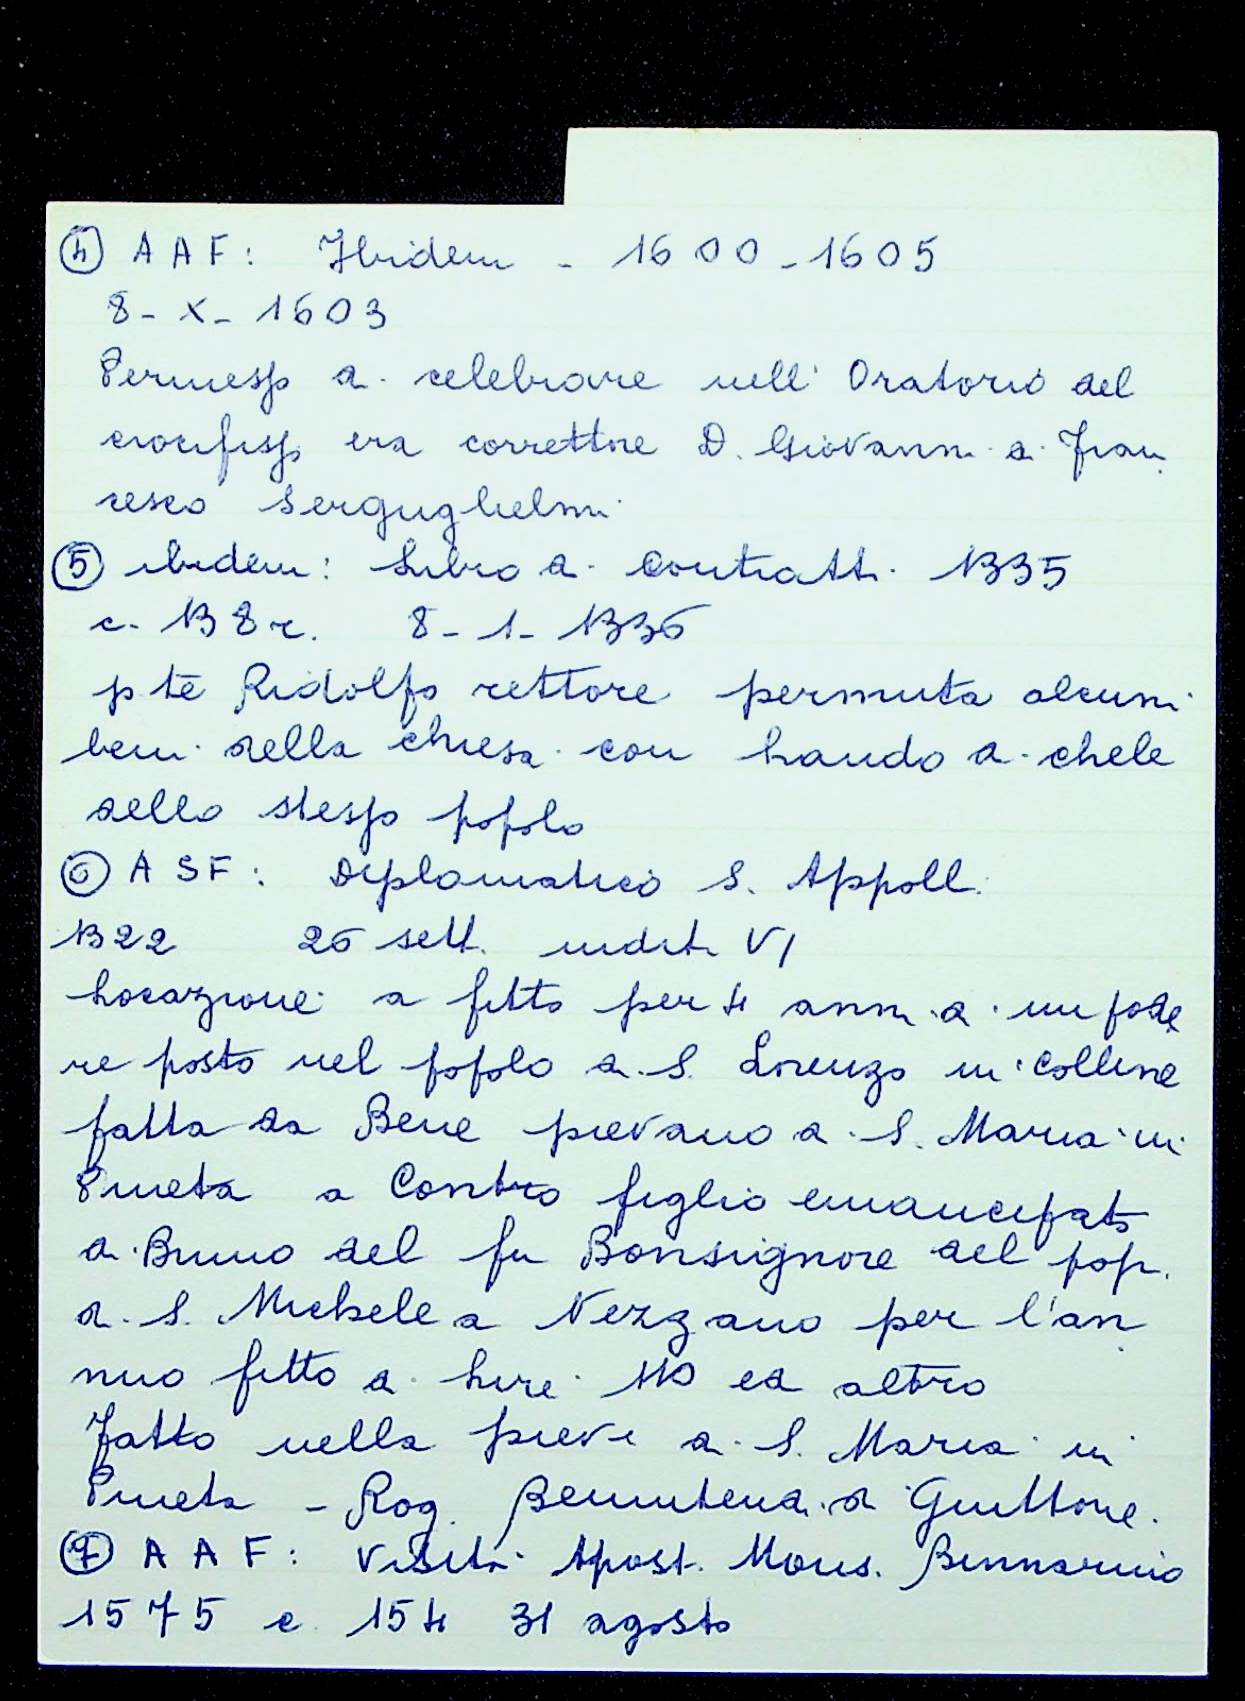 ④ A A F: Ibidem - 1600-1605
8-X-1603
Permesso di celebrare nell' Oratorio del
crocifisso era correttore D. Giovanni di Fran
cesco Serguglielmi
⑤ ibidem: Libro di Contratti 1335
c. 138r. 8-1-1336
pte Ridolfo rettore permuta alcuni
beni della chiesa con Lando di chele
dello stesso popolo
⑥ A S F: Diplomatico S. Appoll.
1322 26 sett. indit. VI
Locazione a fitto per 4 anni di un pode
re posto nel popolo di S. Lorenzo in Colline
fatta da Bene pievano di S. Maria in
Pineta a Contro figlio emancipato
di Buno del fu Bonsignore del pop.
di S. Michele a Nezzano per l'an
nuo fitto di Lire 110 ed altro
Fatto nella pieve di S. Maria in
Pineta - Rog. di Guittone.
⑦ A A F: Visita Apost. Mons. Binnarino
1575 c. 154 31 agosto